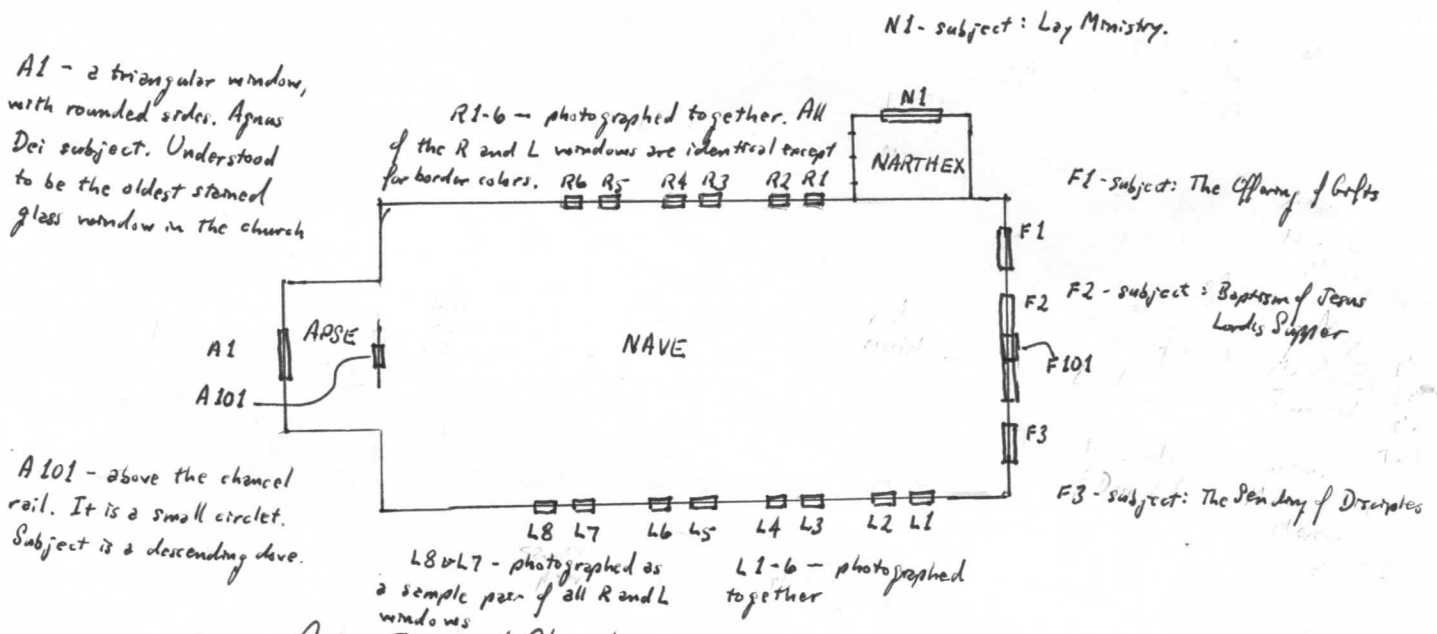 N1 - subject: Lay Ministry.
A1 - a triangular window,
with rounded sides. Agnus
Dei subject. Understood
to be the oldest stained
glass window in the church
R1-6 - photographed together. All
of the R and L windows are identical except
for border colors.
R6 R5 R4 R3 R2 R1
N1
NARTHEX
F1 - subject: The Offering of Gifts
F1
F2 - subject: Baptism of Jesus
Lord's Supper
F2
F101
A1
APSE
NAVE
A101
F3
F3 - subject: The Sending of Disciples
A101 - above the chancel
rail. It is a small circlet.
Subject is a descending dove.
L8 L7 L6 L5 L4 L3 L2 L1
L8 & L7 - photographed as
a sample pair of all R and L
windows
L1-6 - photographed
together